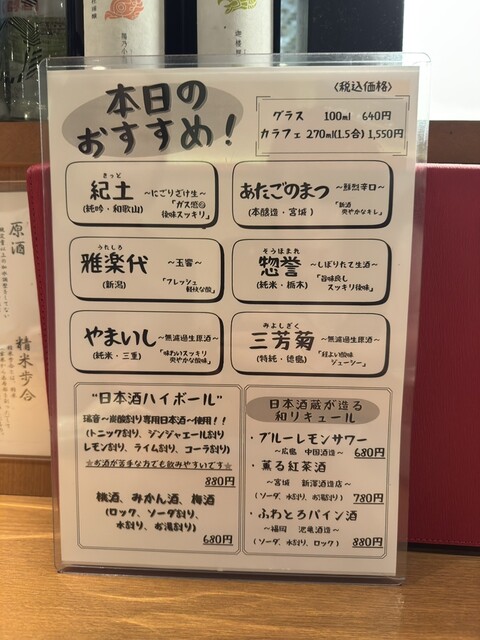 本日の
おすすめ!
〈税込価格〉
グラス 100ml 640円
カラフェ 270ml(1.5合) 1,550円
きっど
紀土 ~にごりざけ生~
(純吟・和歌山) 「ガス感◎
後味スッキリ」
あたごのまつ ~鮮烈辛口~
(本醸造・宮城) 「新酒
爽やかなキレ」
うたしろ
雅楽代 ~玉響~
(新潟) 「フレッシュ
軽快な酸」
そうほまれ
惣誉 ~しぼりたて生酒~
(純米・栃木) 「旨味良し
スッキリ後味」
やまいし ~無濾過生原酒~
(純米・三重) 「味わいスッキリ
爽やかな酸味」
みよしぎく
三芳菊 ~無濾過生原酒~
(特純・徳島) 「程よい酸味
ジューシー」
"日本酒ハイボール"
瑞音~炭酸割り専用日本酒~使用!!
(トニック割り、ジンジャエール割り
レモン割り、ライム割り、コーラ割り)
☆お酒が苦手な方でも飲みやすいです☆
880円
桃酒、みかん酒、梅酒
(ロック、ソーダ割り、
水割り、お湯割り)
680円
日本酒蔵が造る
和リキュール
・ブルーレモンサワー
~広島 中国酒造~ 680円
・薫る紅茶酒
~宮城 新澤酒造店~
(ソーダ、水割り、お湯割り) 780円
・ふわとろパイン酒
~福岡 池亀酒造~
(ソーダ、水割り、ロック) 880円
原酒
精米歩合